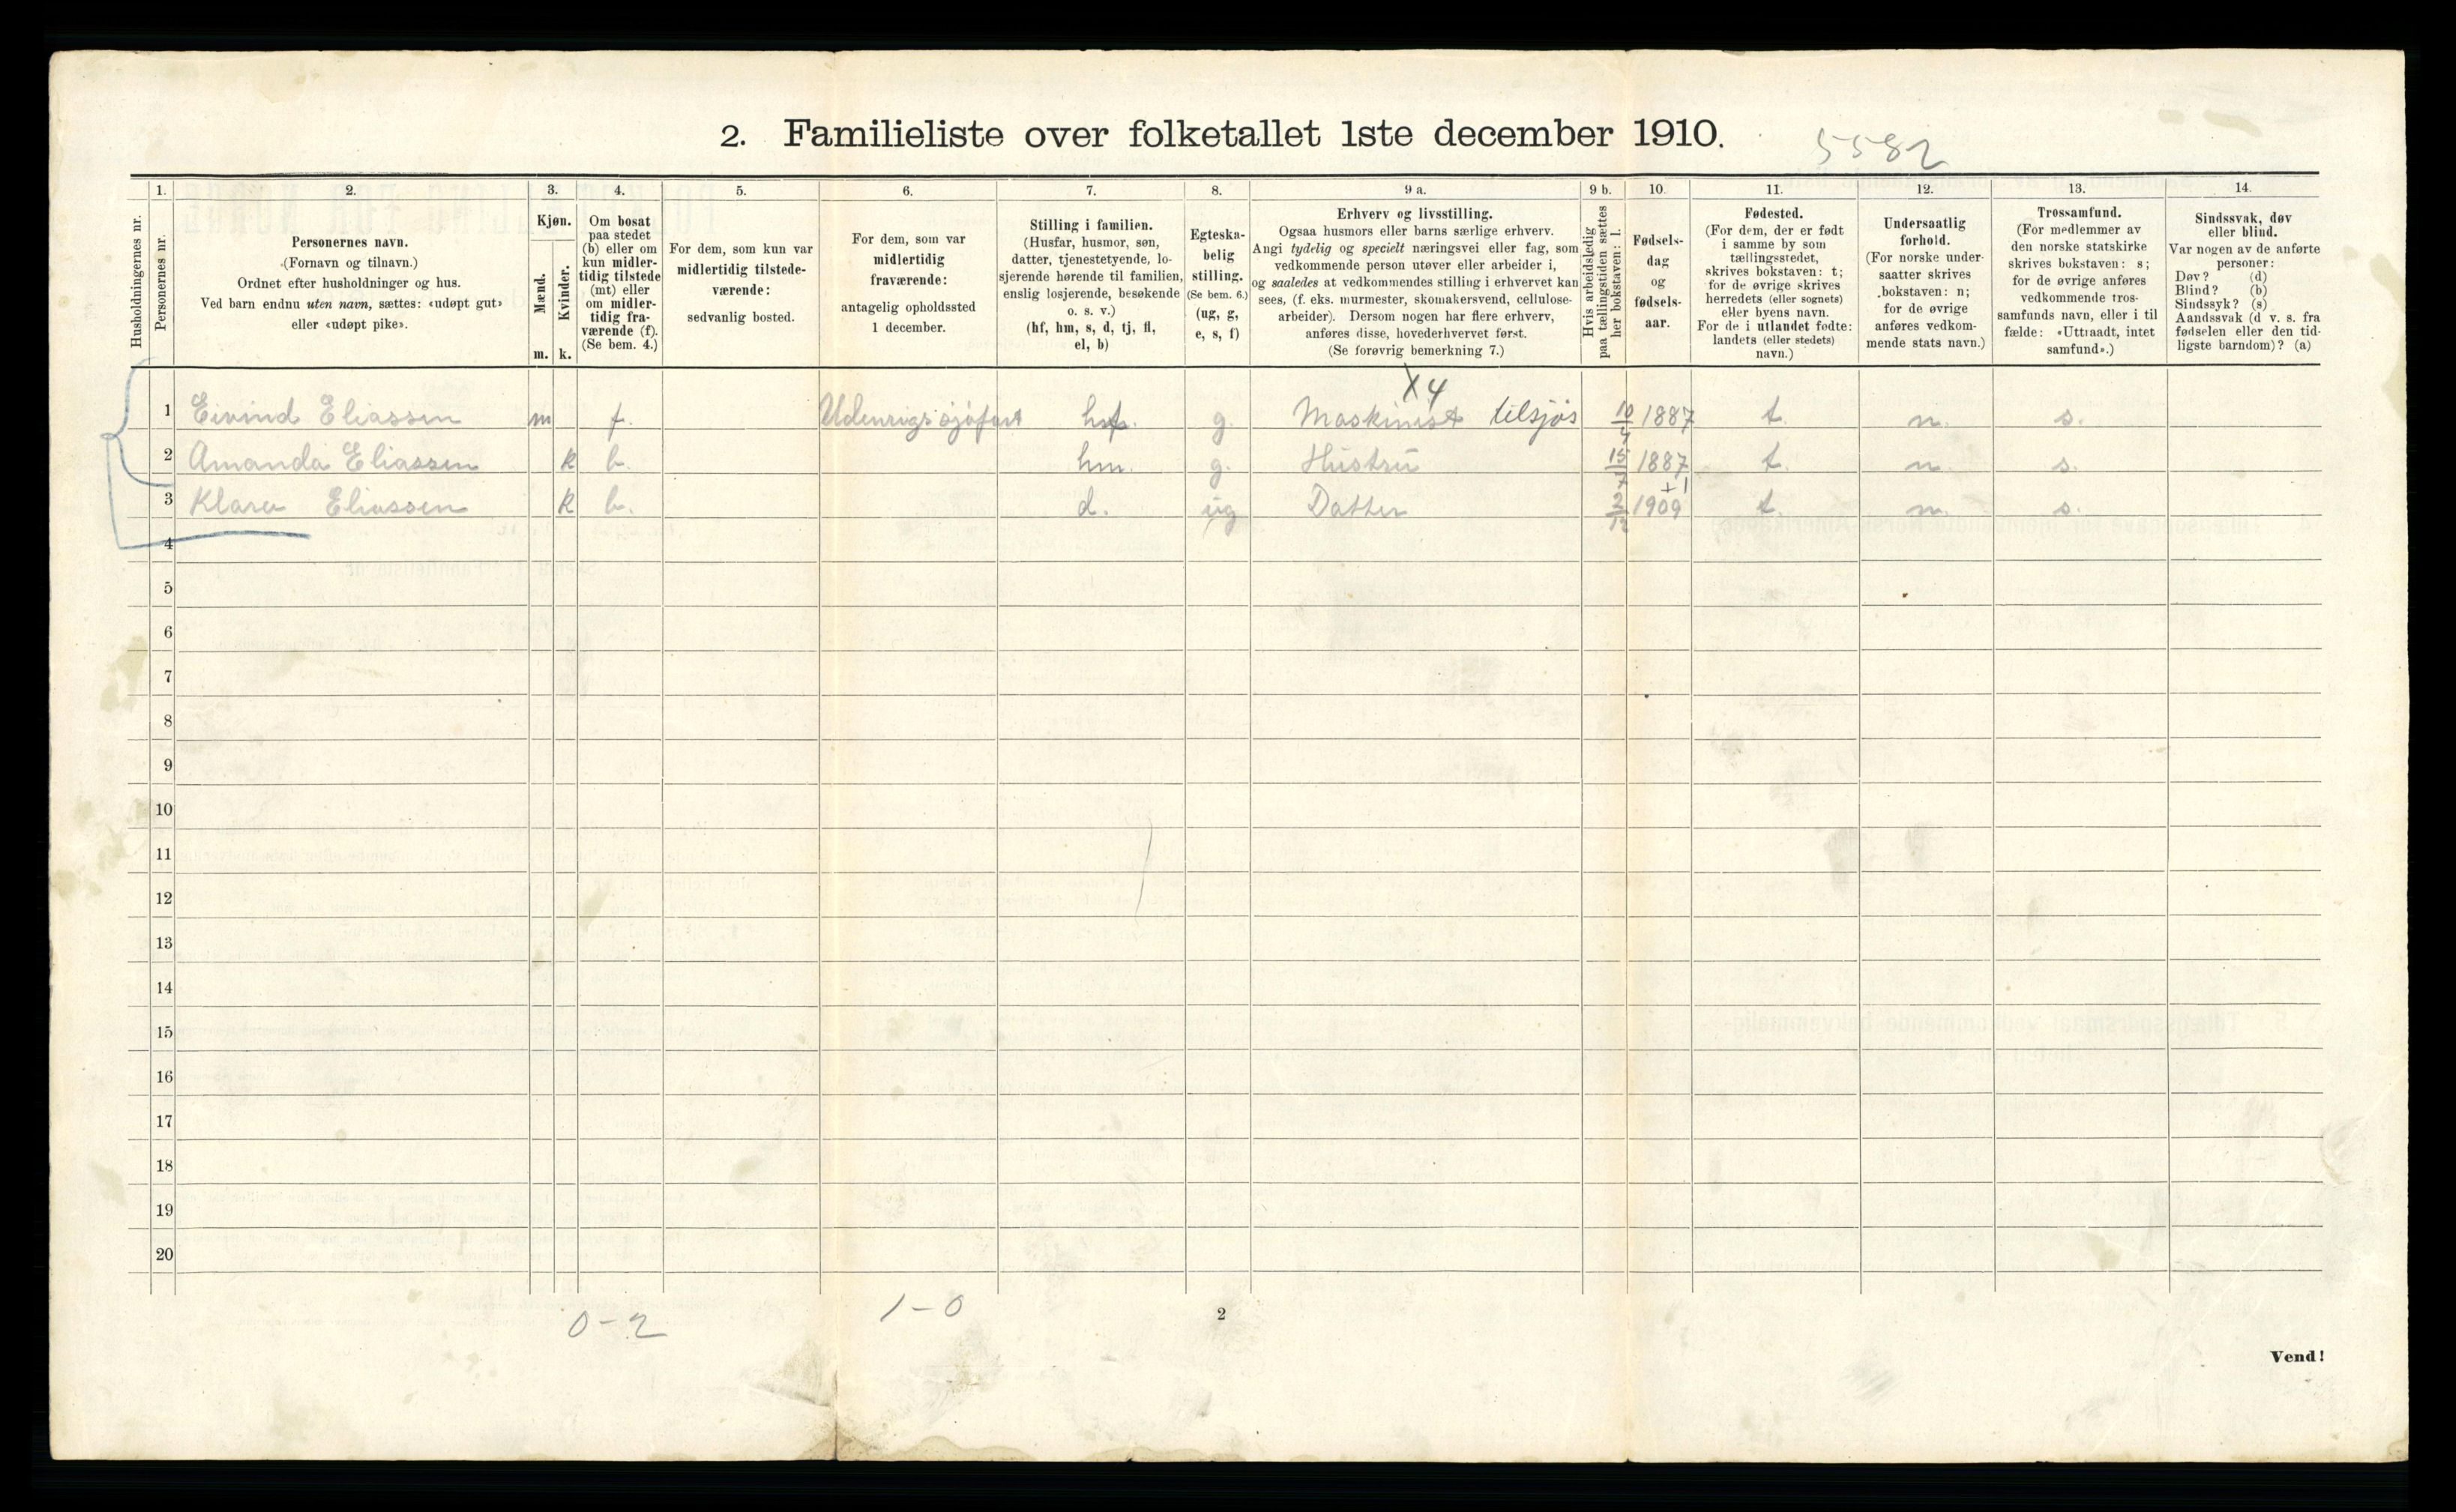 2. Familieliste over folketallet 1ste december 1910.
5582
Husholdningernes nr.
1.
Personernes nr.
2.
Personernes navn.
(Fornavn og tilnavn.)
Ordnet efter husholdninger og hus.
Ved barn endnu uten navn, sættes: «udøpt gut»
eller «udøpt pike».
3.
Kjøn.
Mænd.
Kvinder.
m. k.
4.
Om bosat
paa stedet
(b) eller om
kun midler-
tidig tilstede
(mt) eller
om midler-
tidig fra-
værende (f).
(Se bem. 4.)
5.
For dem, som kun var
midlertidig tilstede-
værende:
sedvanlig bosted.
6.
For dem, som var
midlertidig
fraværende:
antagelig opholdssted
1 december.
7.
Stilling i familien.
(Husfar, husmor, søn,
datter, tjenestetyende, lo-
sjerende hørende til familien,
enslig losjerende, besøkende
o. s. v.)
(hf, hm, s, d, tj, fl,
el, b)
8.
Egteska-
belig
stilling.
(Se bem. 6.)
(ug, g,
e, s, f)
9 a.
Erhverv og livsstilling.
Ogsaa husmors eller barns særlige erhverv.
Angi tydelig og specielt næringsvei eller fag, som
vedkommende person utøver eller arbeider i,
og saaledes at vedkommendes stilling i erhvervet kan
sees, (f. eks. murmester, skomakersvend, cellulose-
arbeider). Dersom nogen har flere erhverv,
anføres disse, hovederhvervet først.
(Se forøvrig bemerkning 7.)
9 b.
Hvis arbeidsledig
paa tællingstiden sættes
her bokstaven: l.
10.
Fødsels-
dag
og
fødsels-
aar.
11.
Fødested.
(For dem, der er født
i samme by som
tællingsstedet,
skrives bokstaven: t;
for de øvrige skrives
herredets (eller sognets)
eller byens navn.
For de i utlandet fødte:
landets (eller stedets)
navn.)
12.
Undersaatlig
forhold.
(For norske under-
saatter skrives
bokstaven: n;
for de øvrige
anføres vedkom-
mende stats navn.)
13.
Trossamfund.
(For medlemmer av
den norske statskirke
skrives bokstaven: s;
for de øvrige anføres
vedkommende tros-
samfunds navn, eller i til
fælde: «Uttraadt, intet
samfund».)
14.
Sindssvak, døv
eller blind.
Var nogen av de anførte
personer:
Døv? (d)
Blind? (b)
Sindssyk? (s)
Aandssvak (d v. s. fra
fødselen eller den tid-
ligste barndom)? (a)
X4
1 Eivind Eliassen m f. Udenrigs sjøfart hf. g. Maskinist tilsjøs 10/4 1887 t. n. s.
2 Amanda Eliassen k b. hm. g. Hustru 15/7 1887 t. n. s.
+1
3 Klara Eliassen k b. d. ug Datter 2/12 1909 t. n. s.
4
5
6
7
8
9
10
11
12
13
14
15
16
17
18
19
20
0-2
1-0
2
Vend!